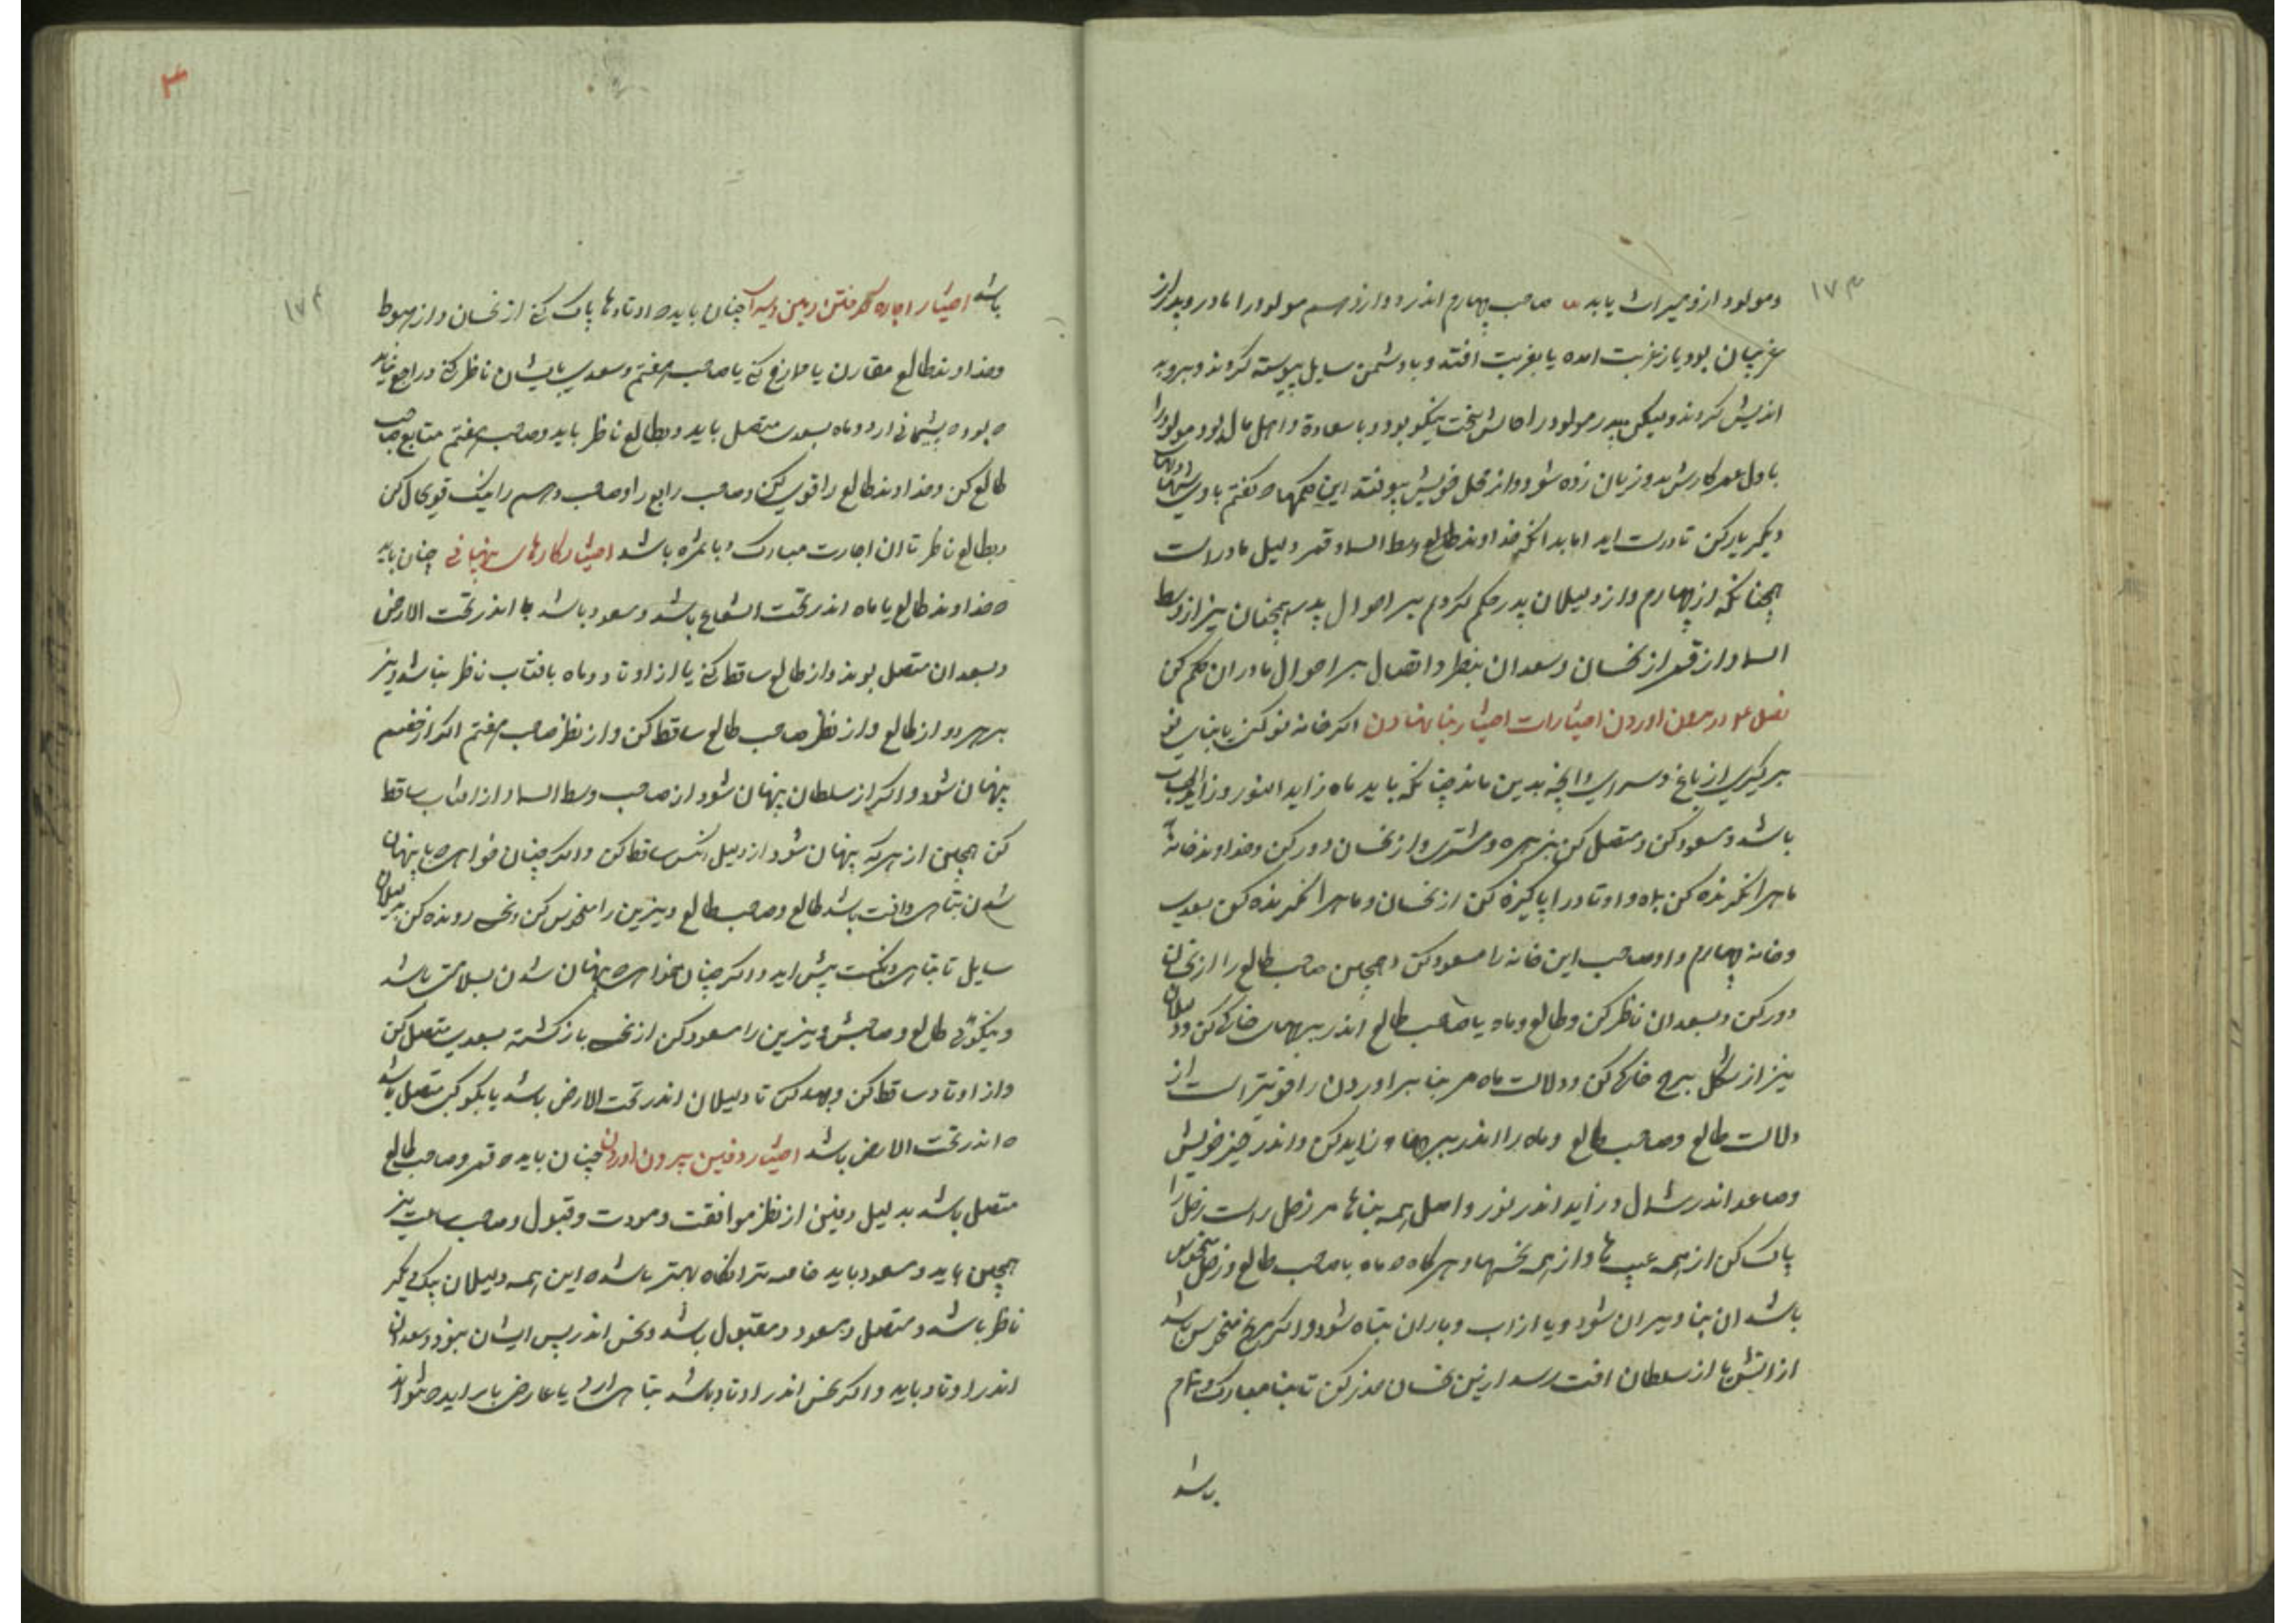 ۱۷۳
ومولود ازو میراث یابد صاحب چهارم اندر دوازدهم مولود را مادر و پدر از
غریبان بود یا از غربت امده یا بغربت افتد و با دشمن سایل پیوسته کردند و برو بد
اندیش کردند ولیکن پدر مولود را حالش سخت نیکو بود و با سعادة و اهل مال بود و مولود را
باول عمر کارش بد و زیان زده شود و از محل خویش بیوفتد این حکمها که کفتم با دلیلهای
دیکر یار کن تا درست اید اما بدانکه خداوند طالع وسط السما و قمر دلیل مادر است
همچنانکه از چهارم و از دلیلان پدر حکم کردم بر احوال پدر همچنان نیز از وسط
السما و از قمر از نحسان و سعدان بنظر و اتصال بر احوال مادران حکم کن
فصل در بیرون اوردن اختیارات اختیار بنا نهادن اکر خانه نو کنی یا بنای نو
بر کیری از باغ و سرای و انچه بدین ماند چنانکه باید ماه زاید النور و زاید الحساب
باشد و مسعود کن و متصل کن بزهره و مشتری و از نحسان دور کن و خداوند خانه
ماه را نکرنده کن بماه و اوتاد را پاکیزه کن از نحسان و ماه را نکرنده کن بسعدی
و خانه چهارم و او صاحب این خانه را مسعود کن و همچنین صاحب طالع را از نحسان
دور کن و بسعدان ناظر کن و طالع و ماه یا صاحب طالع اندر برجهای خاکی کن و دلیلان
نیز از شکل برج خاکی کن و دلالت ماه مر بنا بر اوردن را قویتر است از
دلالت طالع و صاحب طالع و ماه را اندر زاید کن و اندر حیز خویش
وصاعد اندر شمال و زاید اندر نور و اصل همه بناها مر زحل راست زحل را
پاک کن از همه عیب ها و از همه نحسها و هرکاه که ماه با صاحب طالع و زحل منحوس
باشد ان بنا ویران شود و یا از اب و باران تباه شود و اکر مریخ منحوس باشد
از اتش یا از سلطان افت رسد ازین نحسان حذر کن تا بنا مبارک و تمام
باشد
۴
۱۷۴
باشد اختیار اجاره کرفتن زمین و سرا چنان باید که اوتادها پاک کنی از نحسان و از هبوط
و خداوند طالع مقارن یا ممازج کنی یا صاحب هفتم و سعدی بایشان ناظر کنی و راجع نباید
که بود که پشیمانی ارد و ماه بسعدی متصل باید و بطالع ناظر باید و صاحب هفتم متابع صاحب
طالع کن و خداوند طالع را قوی کن و صاحب رابع را و صاحب دهم را نیک قوی حال کن
و بطالع ناظر تا ان اجارت مبارک و با ثمره باشد اختیار کارهای پنهانی چنان باید
که خداوند طالع یا ماه اندر تحت الشعاع باشد و مسعود باشد یا اندر تحت الارض
و بسعدان متصل بوند و از طالع ساقط کنی یا از اوتاد و ماه بافتاب ناظر نباشد و نیز
بر هر دو از طالع و از نظر صاحب طالع ساقط کن و از نظر صاحب هفتم اکر از خصم
پنهان شود و اکر از سلطان پنهان شود از صاحب وسط السما و از افتاب ساقط
کن همچنین از هر که پنهان شود از دلیل انکس ساقط کن و اکر چنان خواهی که با پنهان
شدن تباهی و افت باشد طالع و صاحب طالع و نیرین را منحوس کن و نحس رونده کن بدلیلان
سایل تا تباهی و نکبت پیش اید و اکر چنان خواهی که پنهان شدن بسلامتی باشد
و نیکوئی طالع و صاحبش و نیرین را مسعود کن از نحس باز کشته بسعدی متصل کن
و از اوتاد ساقط کن و جهد کن تا دلیلان اندر تحت الارض باشد یا بکوکبی متصل باشد
که اندر تحت الارض باشد اختیار دفین بیرون اوردن چنان باید که قمر و صاحب طالع
متصل باشد بدلیل دفین از نظر موافقت و مودت و قبول و صاحب ساعت نیز
همچنین باید و مسعود باید خاصه تر انکاه بهتر باشد که این همه دلیلان بیکدیکر
ناظر باشد و متصل و مسعود و مقبول باشد و نحس اندر پس ایشان نبود و سعدان
اندر اوتاد باید و اکر نحس اندر اوتاد باشد تباهی ارد یا عارض باز اید که نتواند